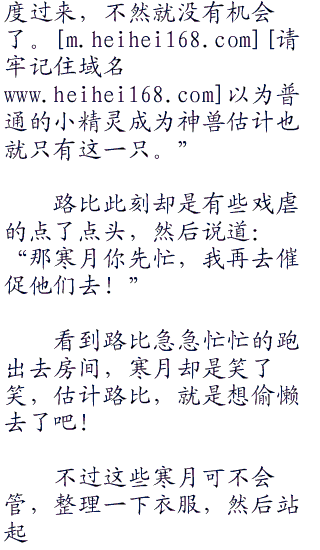 度过来，不然就没有机会
了。[m.heihei168.com][请
牢记住域名
www.heihei168.com]以为普
通的小精灵成为神兽估计也
就只有这一只。”
路比此刻却是有些戏虐
的点了点头，然后说道：
“那寒月你先忙，我再去催
促他们去！”
看到路比急急忙忙的跑
出去房间，寒月却是笑了
笑，估计路比，就是想偷懒
去了吧！
不过这些寒月可不会
管，整理一下衣服，然后站
起